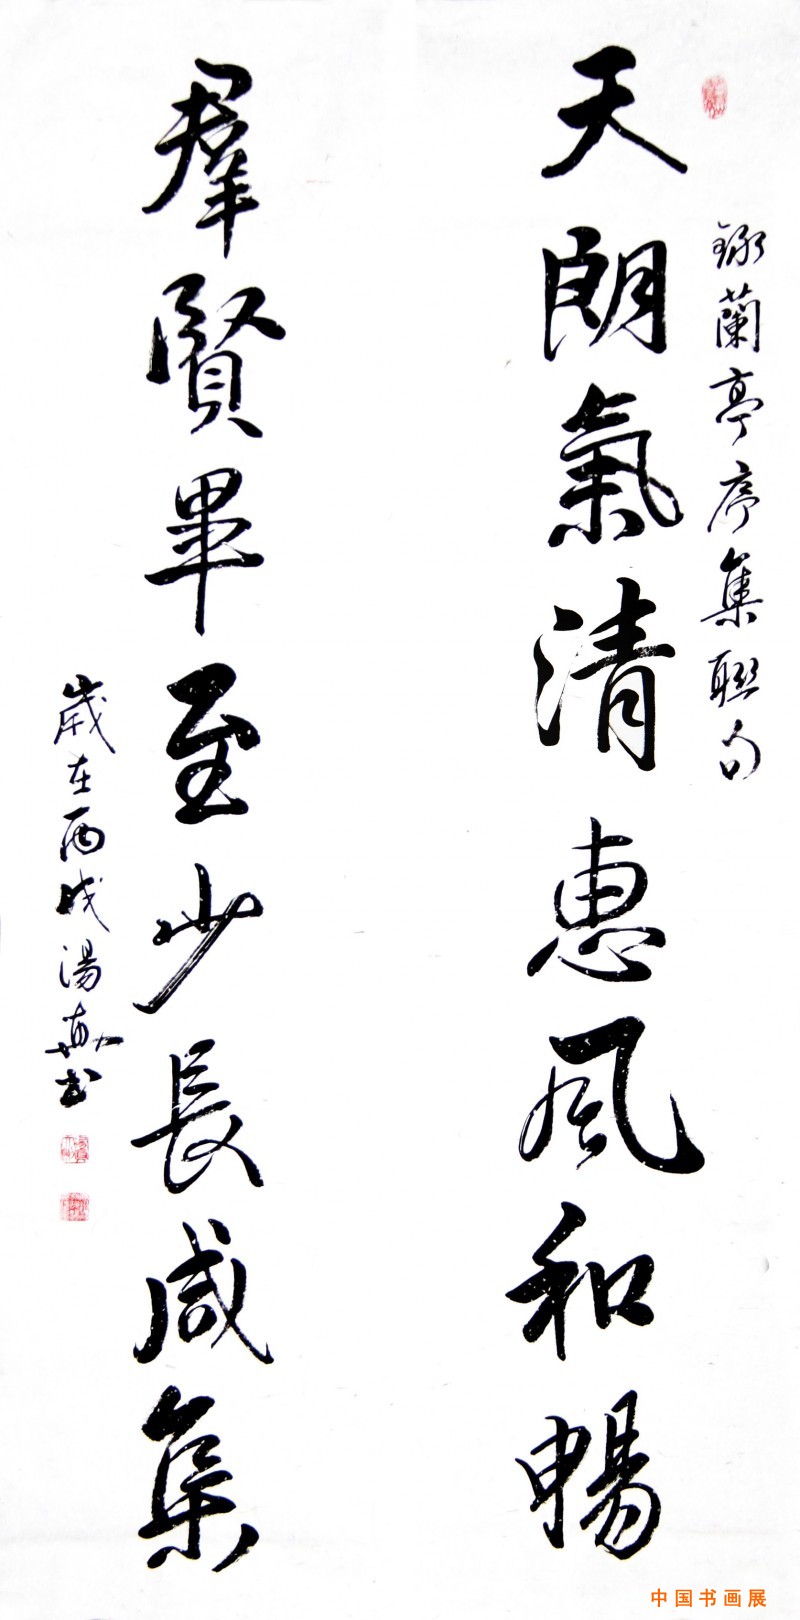 錄蘭亭序集聯句
天朗氣清惠風和暢
羣賢畢至少長咸集
歲在丙戌湯書
中国书画展